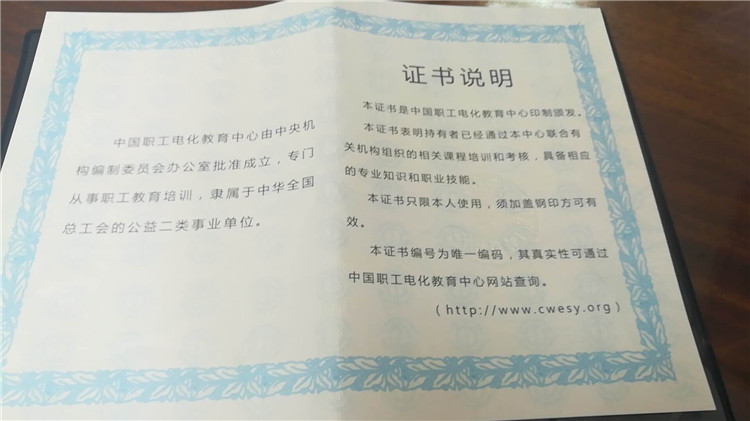 中国职工电化教育中心由中央机
构编制委员会办公室批准成立，专门
从事职工教育培训，隶属于中华全国
总工会的公益二类事业单位。
证书说明
本证书是中国职工电化教育中心印制颁发。
本证书表明持有者已经通过本中心联合有
关机构组织的相关课程培训和考核，具备相应
的专业知识和职业技能。
本证书只限本人使用，须加盖钢印方可有
效。
本证书编号为唯一编码，其真实性可通过
中国职工电化教育中心网站查询。
（http://www.cwesy.org）